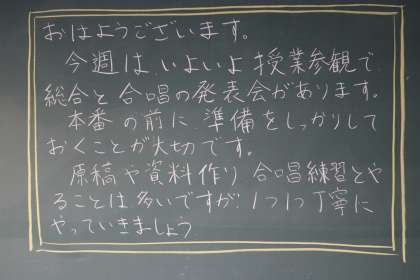 おはようございます。
今週は、いよいよ授業参観で
総合と合唱の発表会があります。
本番の前に準備をしっかりして
おくことが大切です。
原稿や資料作り合唱練習とや
ることは多いですが、1つ1つ丁寧に
やっていきましょう